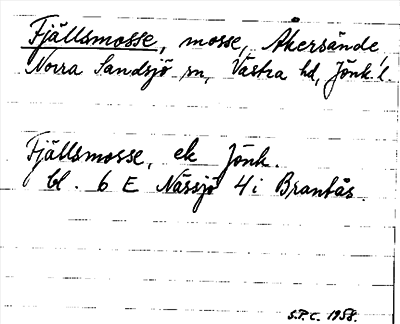 Fjällsmosse, mosse, Åkersände,
Norra Sandsjö sn, Västra hd, Jönk. l
Fjällsmosse, ek Jönk.
bl. 6 E Nässjö 4i Brantås.
S.P.C. 1958.